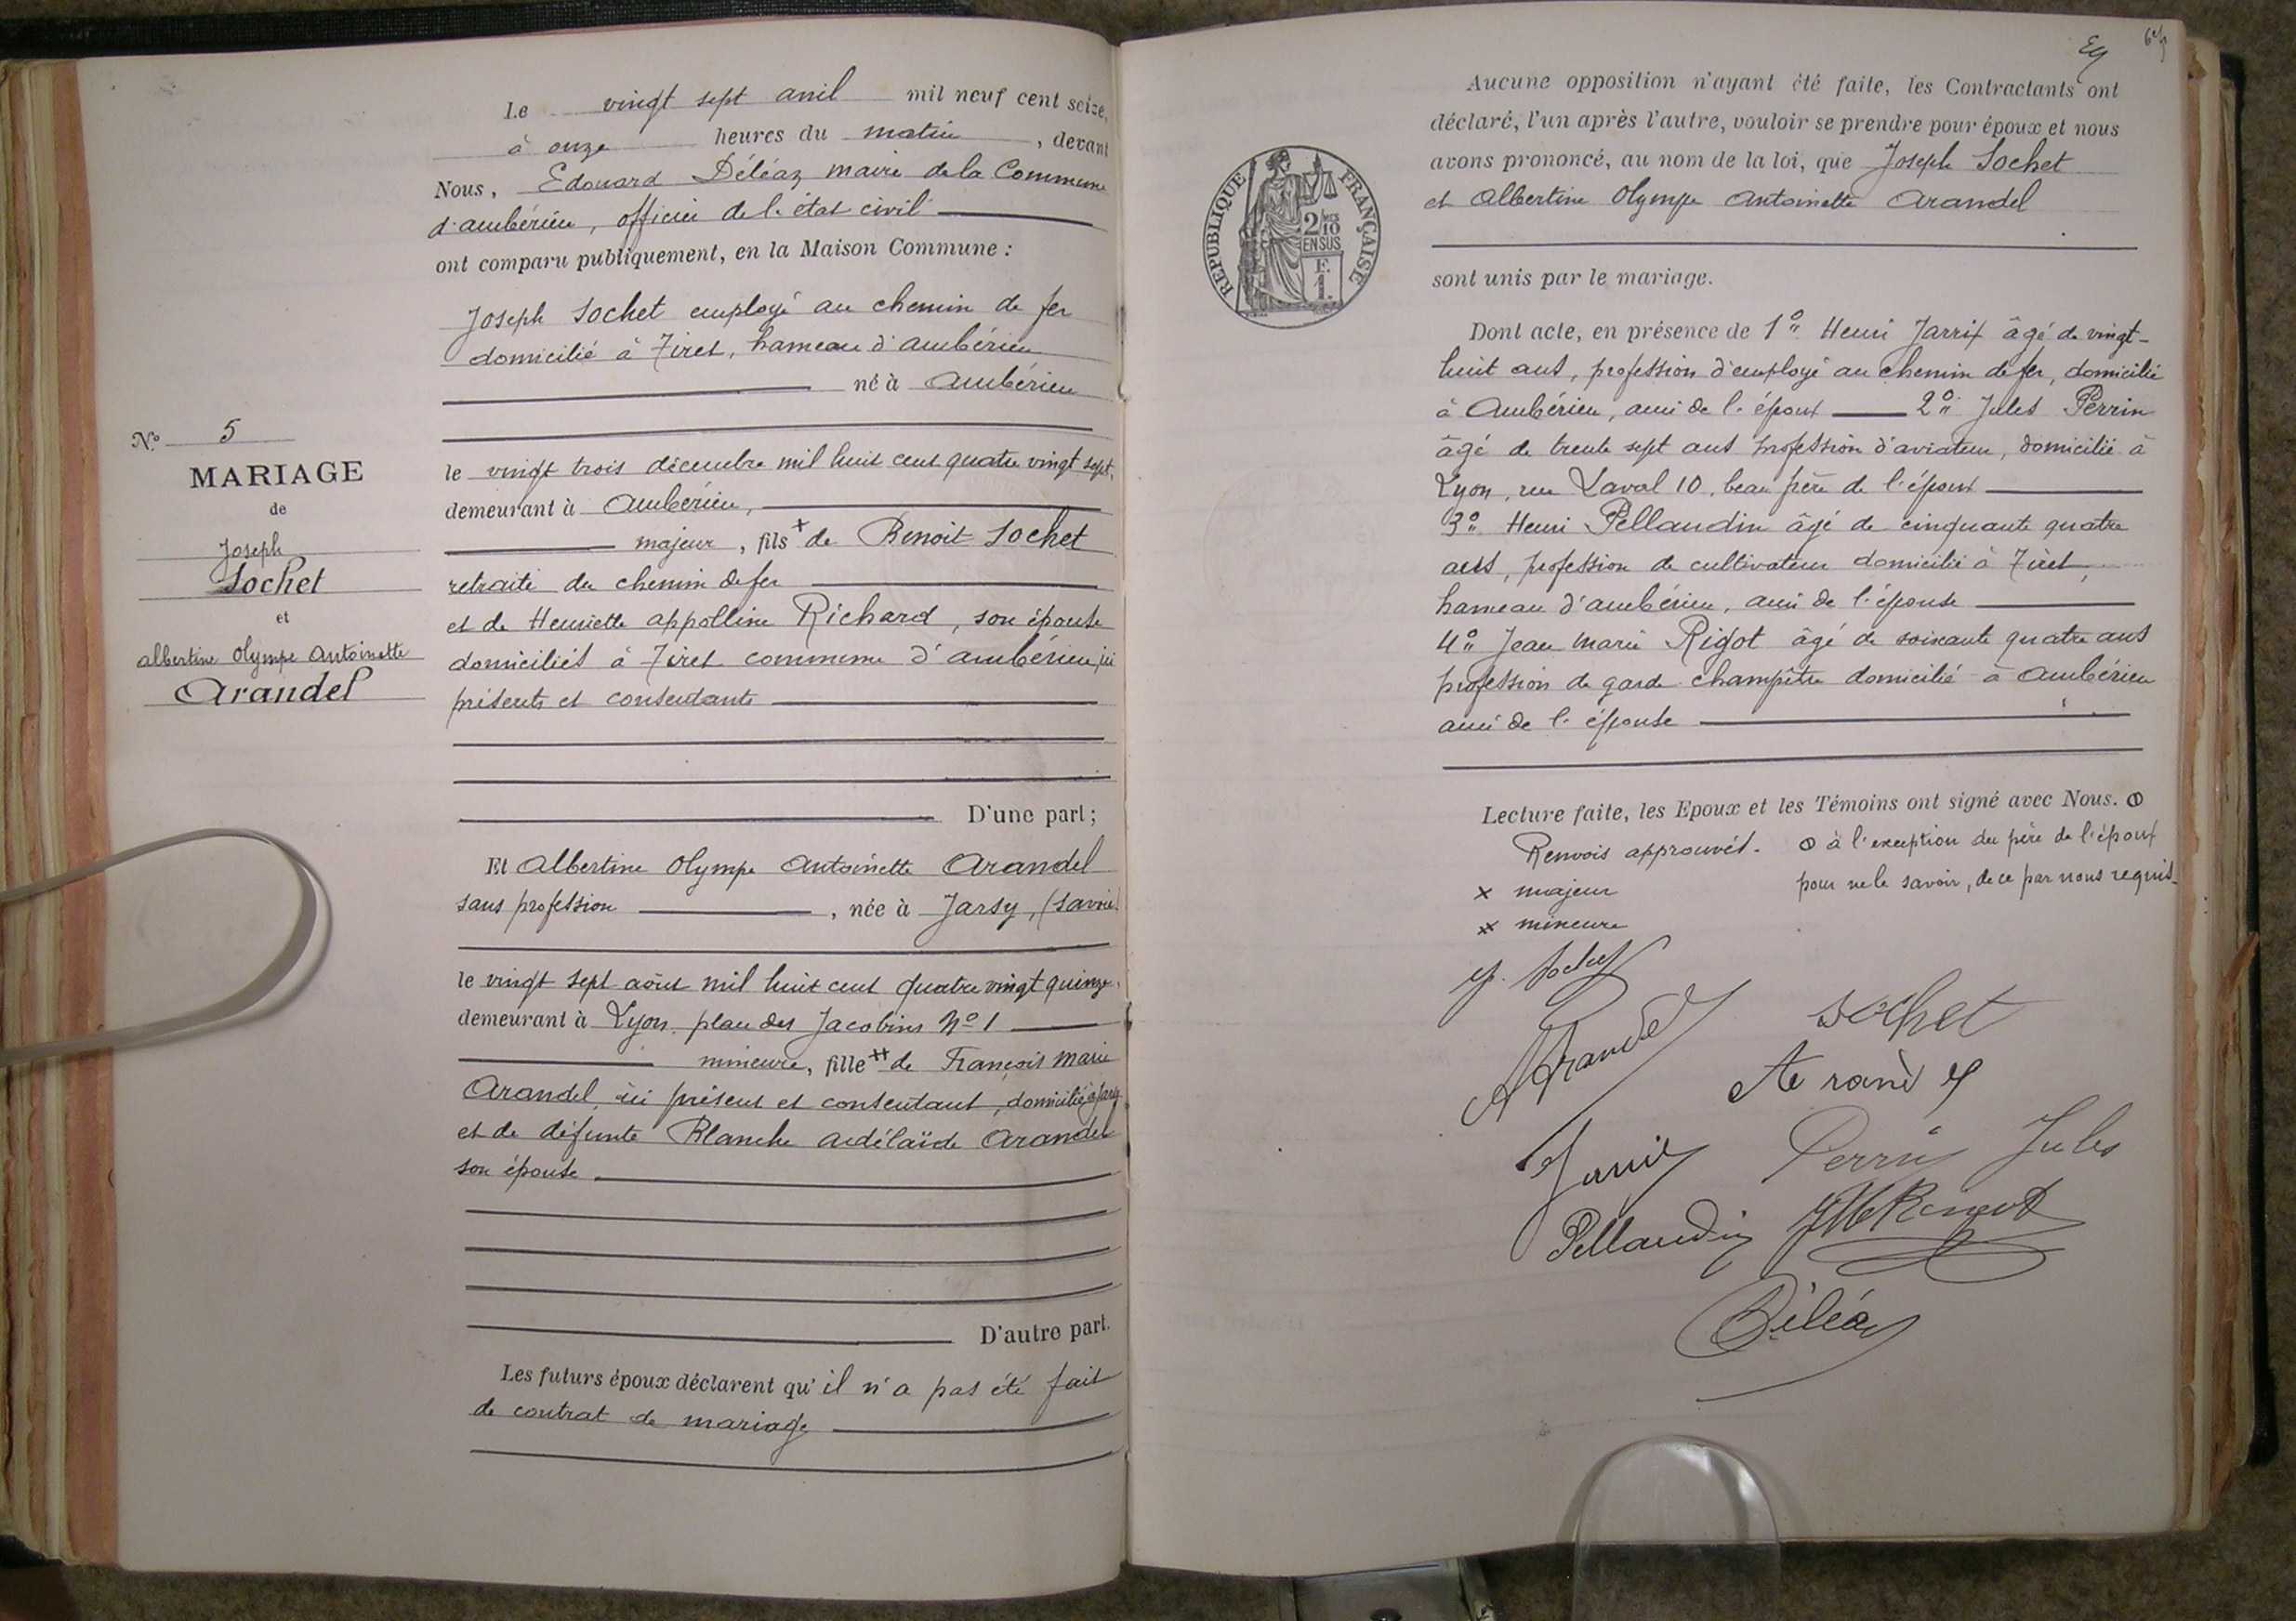 Le vingt sept avril mil neuf cent seize,
à onze heures du matin, devant
Nous, Edouard Déléaz maire de la Commune
d'ambérieu, officier de l'état civil
ont comparu publiquement, en la Maison Commune :
Joseph Sochet employé au chemin de fer
domicilié à Tiret, hameau d'ambérieu
né à Ambérieu
le vingt trois décembre mil huit cent quatre vingt sept,
demeurant à Ambérieu,
majeur, fils + de Benoit Sochet
retraité du chemin de fer
et de Henriette appolline Richard, son épouse
domiciliés à Tiret commune d'ambérieu, ici
présents et consentants
D'une part ;
N° 5
MARIAGE
de
Joseph
Sochet
et
albertine Olympe Antoinette
Arandel
Et Albertine Olympe Antoinette Arandel
sans profession, née à Jarsy, (Savoie)
le vingt sept août mil huit cent quatre vingt quinze,
demeurant à Lyon, place des Jacobins N° 1
mineure, fille ++ de François Marie
Arandel, ici présent et consentant, domicilié à Jarsy
et de défunte Blanche adélaïde Arandel
son épouse
D'autre part.
Les futurs époux déclarent qu'il n'a pas été fait
de contrat de mariage
REPUBLIQUE FRANÇAISE
2/10
EN SUS
F.
1.
Aucune opposition n'ayant été faite, les Contractants ont
déclaré, l'un après l'autre, vouloir se prendre pour époux et nous
avons prononcé, au nom de la loi, que Joseph Sochet
et Albertine Olympe Antoinette Arandel
sont unis par le mariage.
Dont acte, en présence de 1° Henri Jarrix âgé de vingt-
huit ans, profession d'employé au chemin de fer, domicilié
à Ambérieu, ami de l'époux 2° Jules Perrin
âgé de trente sept ans profession d'aviateur, domicilié à
Lyon, rue Laval 10, beau frère de l'époux
3° Henri Pellaudin âgé de cinquante quatre
ans, profession de cultivateur domicilié à Tiret,
hameau d'ambérieu, ami de l'épouse
4° Jean Marie Rigot âgé de soixante quatre ans
profession de garde champêtre domicilié à Ambérieu
ami de l'épouse
Lecture faite, les Epoux et les Témoins ont signé avec Nous.
Renvois approuvés. à l'exception du père de l'époux
pour ne le savoir, de ce par nous requis.
x majeur
++ mineure
J. Sochet
A Arandel
Sochet
Perrin Jules
Pellaudin
Déléaz